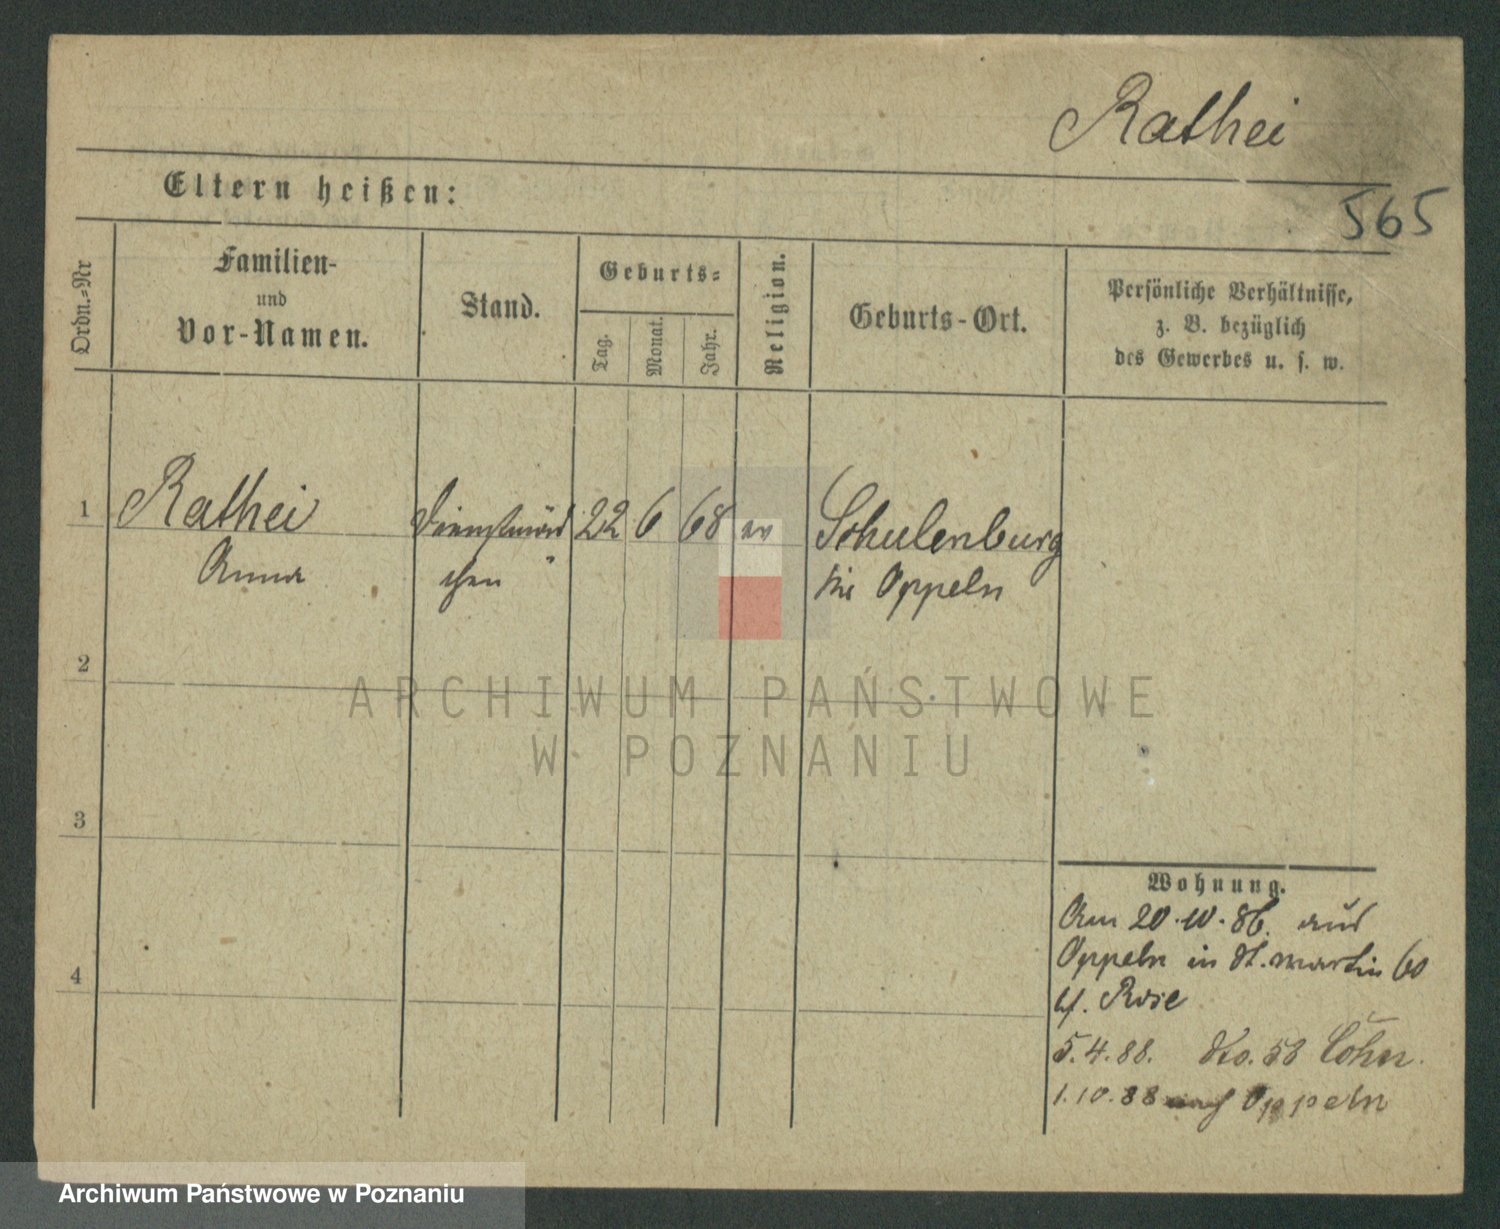 Rathei
565
Eltern heißen:
Ordn.-Nr
Familien-
und
Vor-Namen.
Stand.
Geburts-
Tag.
Monat.
Jahr.
Religion.
Geburts-Ort.
Persönliche Verhältnisse,
z. B. bezüglich
des Gewerbes u. s. w.
1
Rathei Dienstmäd 22 6 68 ev Schulenburg
Anna chen Oppeln
2
ARCHIWUM PAŃSTWOWE
W POZNANIU
3
Wohnung.
Am 20.10.86. aus
Oppeln in St. Martin 60
b/. Rose
4
5.4.88. dto. 58 Cohn.
1.10.88 nach Oppeln
Archiwum Państwowe w Poznaniu